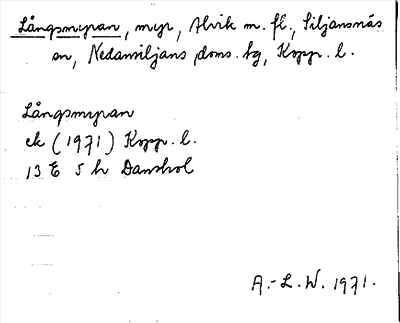 Långsmyran, myr, Alvik m. fl., Siljansnäs
sn, Nedansiljans doms. bg, Kopp. l.
Långsmyran
ek (1971) Kopp. l.
13 E 5 h Danshol
A.-L. W. 1971.